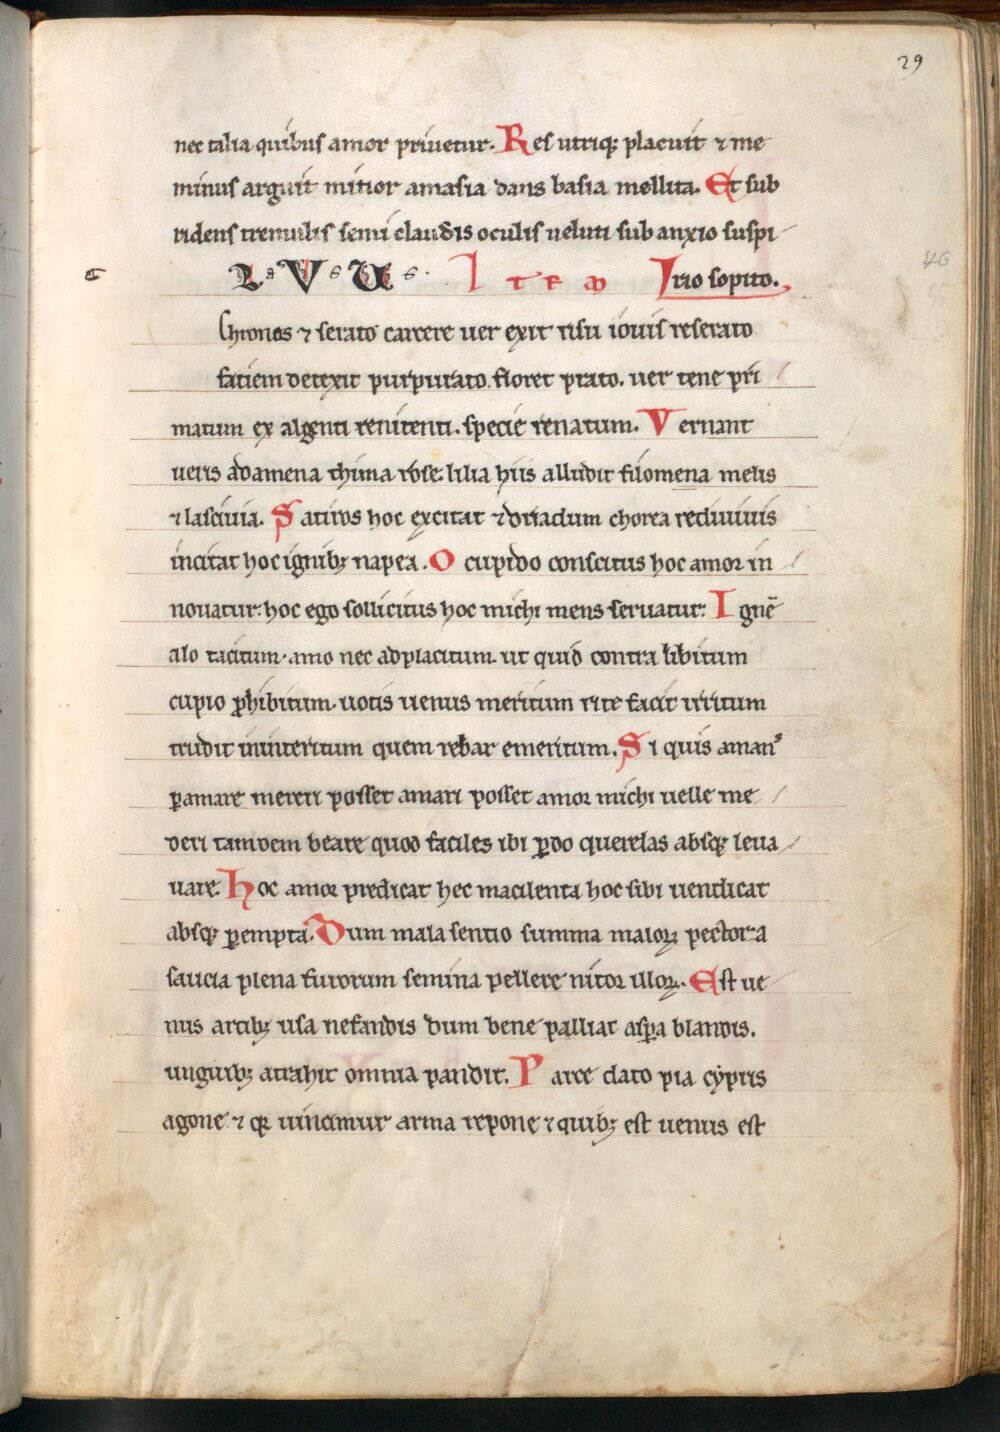 29
nec talia quibus amor priuetur. Res utriq; placuit ⁊ me
minus arguit mitior amasia dans basia mellita. Et sub
ridens tremulis semi clausis oculis ueluti sub anxio suspi
Item Irio sopito.
46
Chronos ⁊ serato carcere uer exit risu iouis reserato
faciem detexit purpurato. floret prato. uer tene pri
matum ex algenti renitenti. specie renatum. Vernant
ueris ad amena thima rose. lilia hiis alludit filomena melis
⁊ lasciuia. Satiros hoc excitat ⁊ driadum chorea rediuiuis
incitat hoc ignib; napea. O cupido conscitus hoc amor in
nouatur. hoc ego sollicitus hoc michi mens seruatur. Ignē
alo tacitum. amo nec ad placitum. ut quid contra libitum
cupio ꝓhibitum. uotis uenus meritum rite facit irritum
trudit in interitum quem rebar emeritum. Si quis amans
ꝑamare mereri posset amari posset amor michi uelle me
deri tandem beare quod faciles ibi ꝑdo querelas absq; leua
uare. Hoc amor predicat hec macilenta hoc sibi uendicat
absq; ꝑempta. Dum mala sentio summa maioꝝ pectora
saucia plena furorum semina pellere nitor illoꝝ. Est ue
nus artib; usa nefandis dum bene palliat asꝑa blandis.
unguib; atrahit omnia pandit. Parce dato pia cypris
agone ⁊ qꝛ uincimur arma repone ⁊ quib; est uenus est